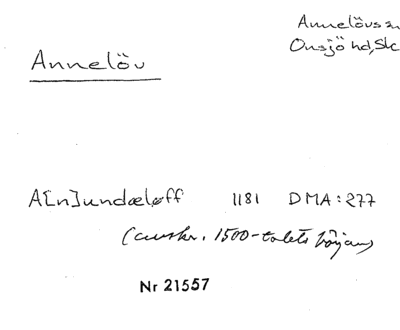 Annelövs sn
Onsjö hd, Sk
Annelöv
A[n]undæløff 1181 DMA: 277
(avskr. 1500-talets början)
Nr 21557